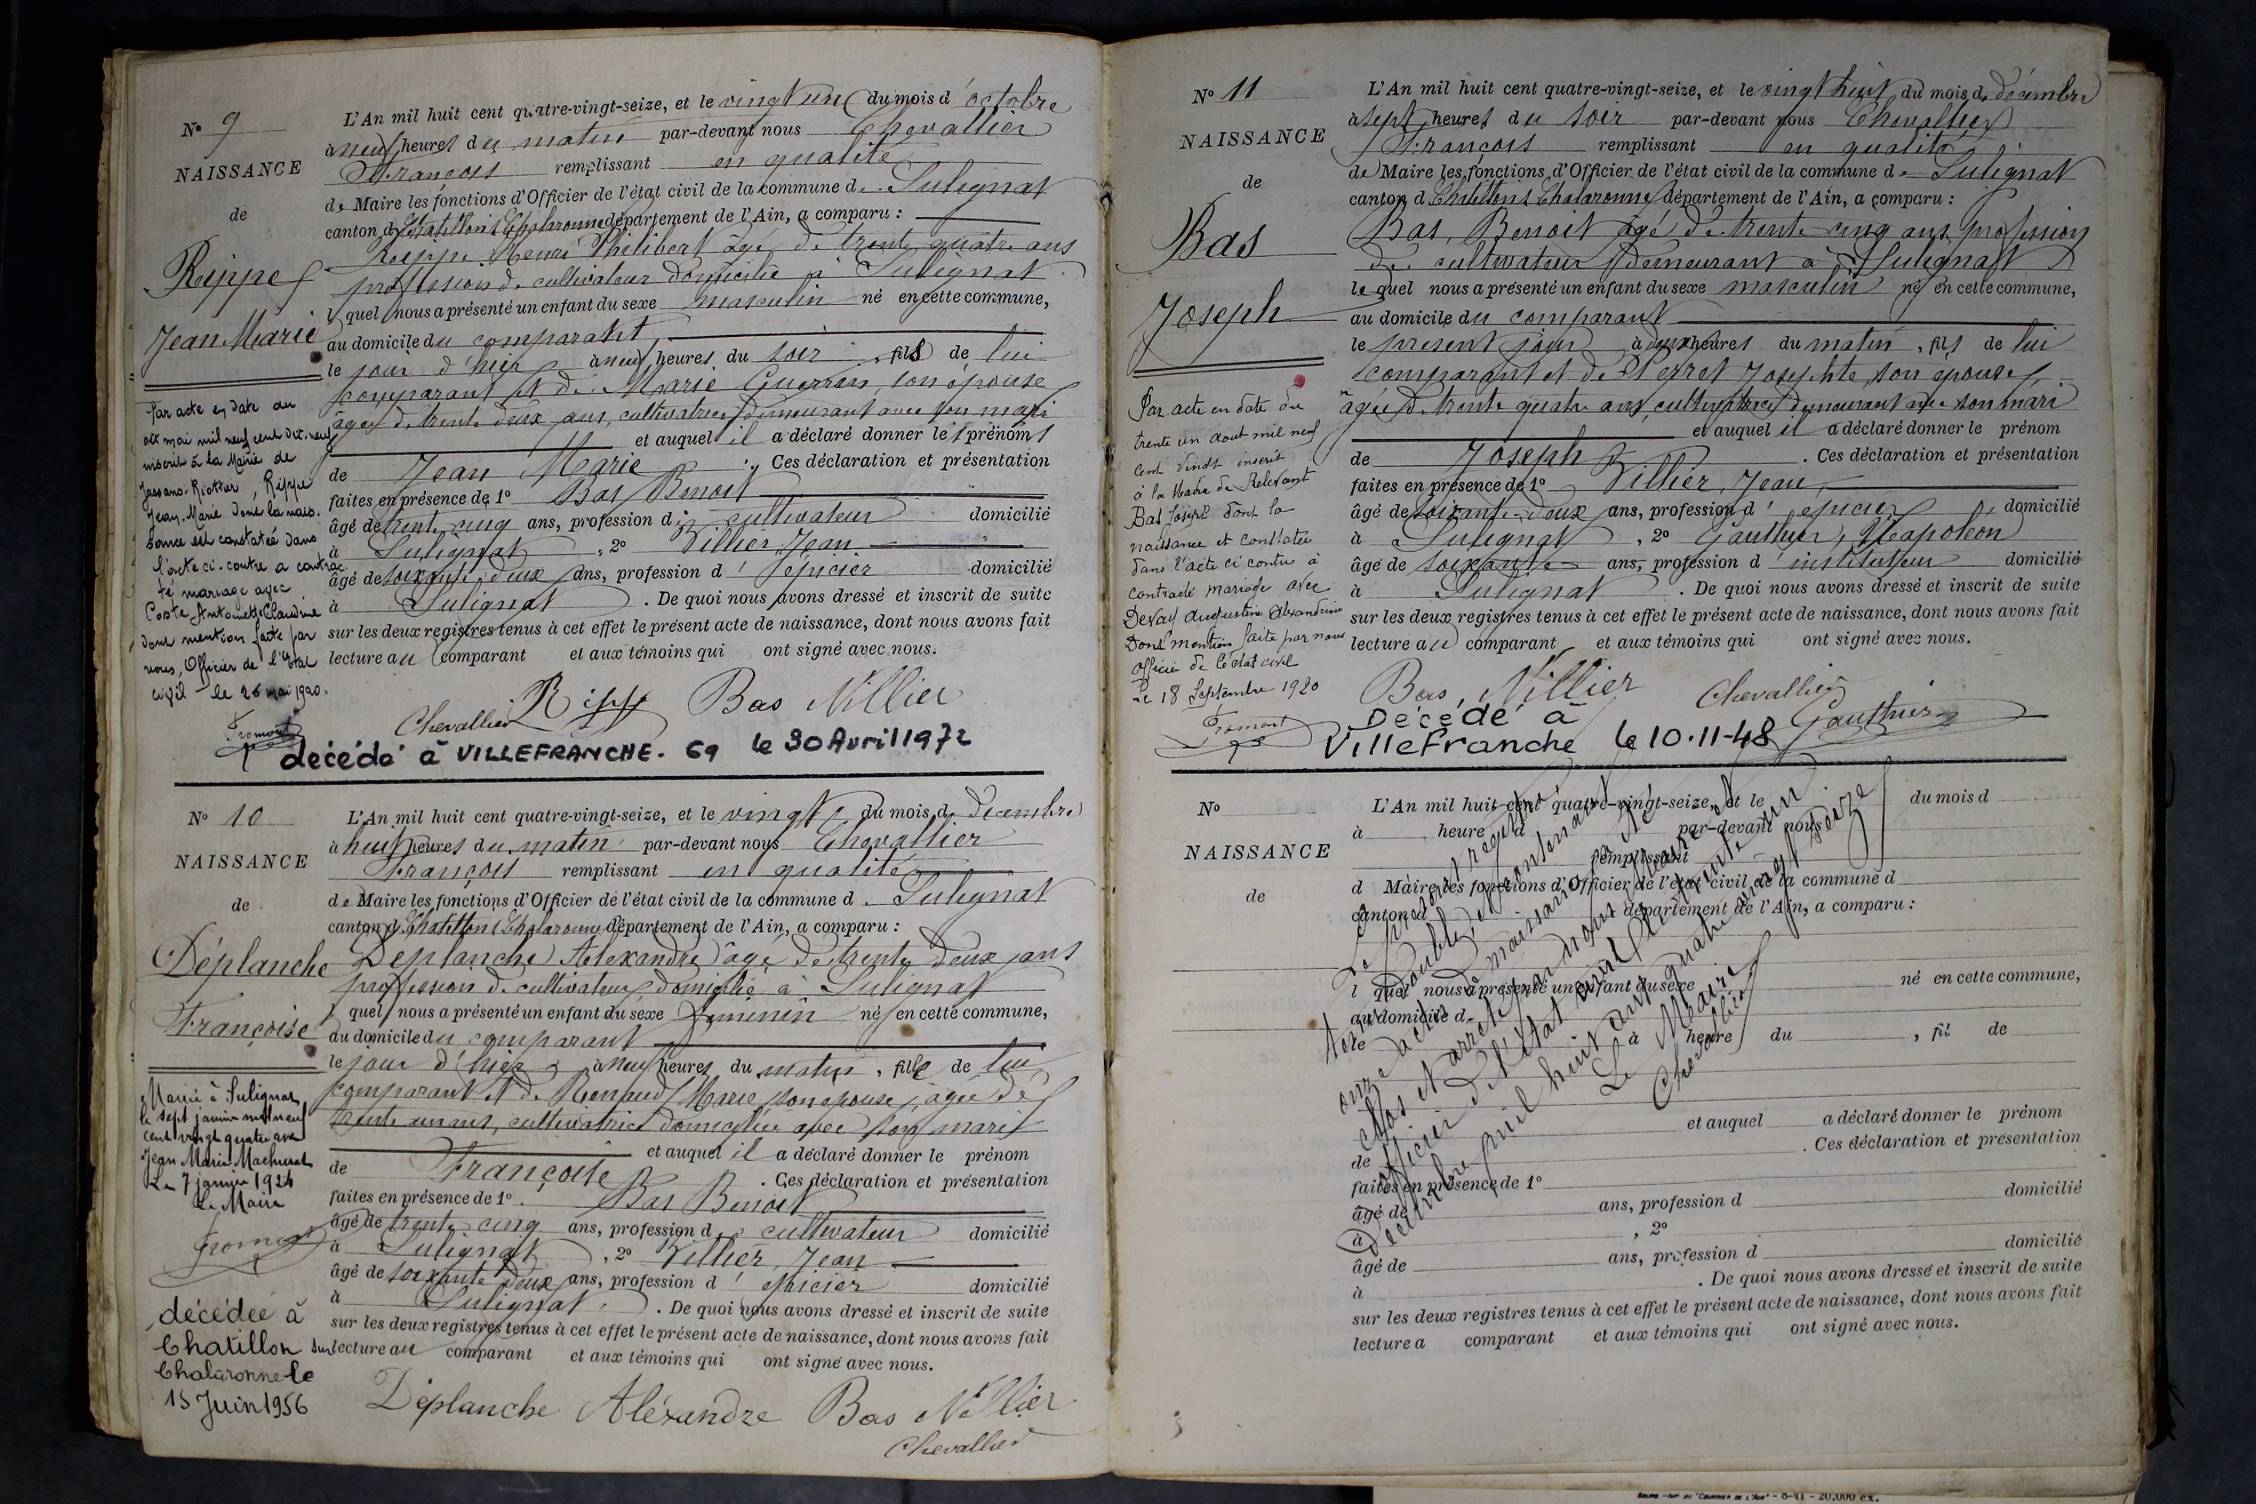 N° 9
NAISSANCE
de
Rippe
Jean Marie
Par acte en date du
dix mai mil neuf cent dix-neuf
inscrit à la Mairie de
Jassans-Riottier, Rippe
Jean-Marie dont la nais-
sance est constatée dans
l'acte ci-contre a contrac-
té mariage avec
Coste Antoinette Claudine
dont mention faite par
nous, Officier de l'état
civil le 26 mai 1920.
Fromont
L'An mil huit cent quatre-vingt-seize, et le vingt un du mois d'octobre
à neuf heures du matin par-devant nous Chevallier
François remplissant en qualité
de Maire les fonctions d'Officier de l'état civil de la commune de Sulignat
canton de Chatillon s Chalaronne département de l'Ain, a comparu :
Rippe Henri Philibert âgé de trente quatre ans
profession de cultivateur domicilié à Sulignat
lequel nous a présenté un enfant du sexe masculin né en cette commune,
au domicile du comparant
le jour d'hier à neuf heures du soir, fils de lui
comparant et de Marie Guerrin, son épouse
âgée de trente deux ans, cultivatrice demeurant avec son mari
et auquel il a déclaré donner les prénoms
de Jean Marie. Ces déclaration et présentation
faites en présence de 1° Bas Benoit
âgé de trente cinq ans, profession de cultivateur domicilié
à Sulignat, 2° Villier Jean
âgé de soixante deux ans, profession d'épicier domicilié
à Sulignat. De quoi nous avons dressé et inscrit de suite
sur les deux registres tenus à cet effet le présent acte de naissance, dont nous avons fait
lecture au comparant et aux témoins qui ont signé avec nous.
Chevallier Rippe Bas Villier
décédé à VILLEFRANCHE. 69 le 30 Avril 1972
N° 10
NAISSANCE
de
Déplanche
Françoise
Mariée à Sulignat
le sept janvier mil neuf
cent vingt quatre avec
Jean Marie Machurat
Le 7 janvier 1924
Le Maire
Fromont
décédée à
Chatillon sur
Chalaronne le
15 Juin 1956
L'An mil huit cent quatre-vingt-seize, et le vingt du mois de décembre
à huit heures du matin par-devant nous Chevallier
François remplissant en qualité
de Maire les fonctions d'Officier de l'état civil de la commune de Sulignat
canton de Chatillon s Chalaronne département de l'Ain, a comparu :
Déplanche Alexandre âgé de trente deux ans
profession de cultivateur domicilié à Sulignat
lequel nous a présenté un enfant du sexe féminin né en cette commune,
au domicile du comparant
le jour d'hier à neuf heures du matin, fille de lui
comparant et de Renaud Marie son épouse, âgée de
trente un ans, cultivatrice domiciliée avec son mari
et auquel il a déclaré donner le prénom
de Françoise. Ces déclaration et présentation
faites en présence de 1° Bas Benoit
âgé de trente cinq ans, profession de cultivateur domicilié
à Sulignat, 2° Villier, Jean
âgé de soixante deux ans, profession d'épicier domicilié
à Sulignat. De quoi nous avons dressé et inscrit de suite
sur les deux registres tenus à cet effet le présent acte de naissance, dont nous avons fait
lecture au comparant et aux témoins qui ont signé avec nous.
Déplanche Aléxandre Bas Villier
Chevallier
N° 11
NAISSANCE
de
Bas
Joseph
Par acte en date du
trente un aout mil neuf
cent vingt inscrit
à la Mairie de Relevant
Bas Joseph dont la
naissance et constatée
dans l'acte ci contre à
contracté mariage avec
Devay Augustine Alexandrine
Dont mention faite par nous
officier de l'état civil
Le 18 Septembre 1920
Fromont
L'An mil huit cent quatre-vingt-seize, et le vingt huit du mois de décembre
à sept heures du soir par-devant nous Chevallier
François remplissant en qualité
de Maire les fonctions d'Officier de l'état civil de la commune de Sulignat
canton de Chatillon s Chalaronne département de l'Ain, a comparu :
Bas, Benoit âgé de trente cinq ans, profession
de cultivateur demeurant à Sulignat
lequel nous a présenté un enfant du sexe masculin né en cette commune,
au domicile du comparant
le présent jour à deux heures du matin, fils de lui
comparant et de Perret Josephte, son épouse,
âgée de trente quatre ans, cultivatrice demeurant avec son mari
et auquel il a déclaré donner le prénom
de Joseph. Ces déclaration et présentation
faites en présence de 1° Villier, Jean,
âgé de soixante-deux ans, profession d'épicier, domicilié
à Sulignat, 2° Gauthier, Napoléon
âgé de soixante ans, profession d'instituteur domicilié
à Sulignat. De quoi nous avons dressé et inscrit de suite
sur les deux registres tenus à cet effet le présent acte de naissance, dont nous avons fait
lecture au comparant et aux témoins qui ont signé avec nous.
Bas Villier Chevallier
Gauthier
Décédé à
Villefranche le 10.11-48
N°
NAISSANCE
de
L'An mil huit cent quatre-vingt-seize, et le du mois d
à heure d par-devant nous
remplissant
d Maire les fonctions d'Officier de l'état civil de la commune d
canton d département de l'Ain, a comparu :
l quel nous a présenté un enfant du sexe né en cette commune,
au domicile d
le à heure du , fil de
et auquel a déclaré donner le prénom
de . Ces déclaration et présentation
faites en présence de 1°
âgé de ans, profession d domicilié
à , 2°
âgé de ans, profession d domicilié
à . De quoi nous avons dressé et inscrit de suite
sur les deux registres tenus à cet effet le présent acte de naissance, dont nous avons fait
lecture a comparant et aux témoins qui ont signé avec nous.
Le présent registre
tenu double, contenant
onze actes de naissance a été
clos et arrêté par nous Maire et
officier de l'état civil le trente un
décembre mil huit cent quatre vingt seize
Le Maire
Chevallier